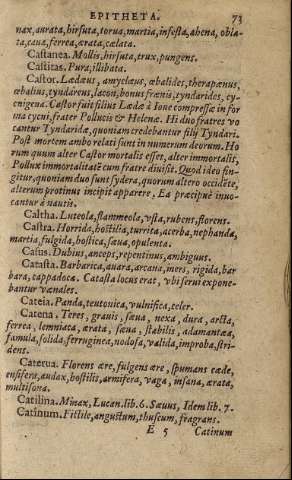 EPITHETA. 73
nax, aurata, hirsuta, torua, martia, infesta, ahena, obla-
ta, caua, ferrea, ærata, cælata.
Castanea. Mollis, hirsuta, trux, pungens.
Castitas. Pura, illibata.
Castor. Lædæus, amyclæus, œbalides, therapnæus,
œbalius, tyndareus, lacon, bonus frænis, tyndarides, cy-
cnigena. Castor fuit filius Lædæ à Ioue compressæ in for
ma cycni, frater Pollucis & Helenæ. Hi duo fratres vo
cantur Tyndaridæ, quoniam credebantur filij Tyndari.
Post mortem ambo relati sunt in numerum deorum. Ho
rum quum alter Castor mortalis esset, alter immortalis,
Pollux immortalitatē cum fratre diuisit. Quod ideo fin-
gitur, quoniam duo sunt sydera, quorum altero occidēte,
alterum protinus incipit apparere. Ea præcipuè inuo-
cantur à nautis.
Caltha. Luteola, flammeola, vsta, rubens, florens.
Castra. Horrida, hostilia, turrita, acerba, nephanda,
martia, fulgida, hostica, sæua, opulenta.
Casus. Dubius, anceps, repentinus, ambiguus.
Catasta. Barbarica, auara, arcana, mers, rigida, bar
bara, cappadoca. Catasta locus erat, vbi serui expone-
bantur vænales.
Cateia. Panda, teutonica, vulnifica, celer.
Catena. Teres, grauis, sæua, nexa, dura, arcta,
ferrea, lemniaca, ærata, sæua, stabilis, adamantæa,
famula, solida, ferruginea, nodosa, valida, improba, stri-
dens.
Caterua. Florens ære, fulgens ære, spumans cæde,
ensifera, audax, hostilis, armifera, vaga, insana, ærata,
multisona.
Catilina. Minax, Lucan. lib. 6. Sæuus, Idem lib. 7.
Catinum. Fictile, angustum, thuscum, fragrans.
E 5 Catinum